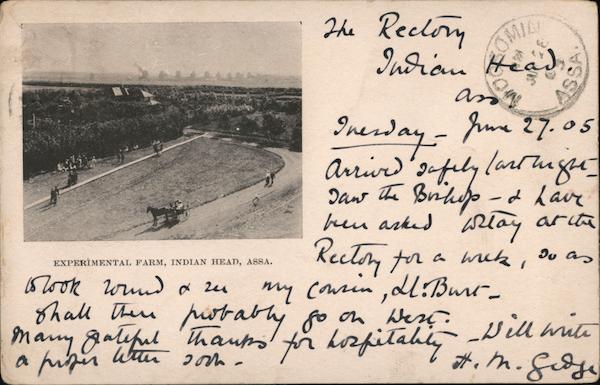 The Rectory
Indian Head
Ass
Tuesday - June 27. 05
Arrived safely last night -
saw the Bishop - & have
been asked to stay at the
Rectory for a week, so as
to look round & see my cousin, Burt -
Shall then probably go on West.
Many grateful thanks for hospitality - Will write
a proper letter soon - H. M. Gedge
MOOSOMIN
ASSA.
EXPERIMENTAL FARM, INDIAN HEAD, ASSA.